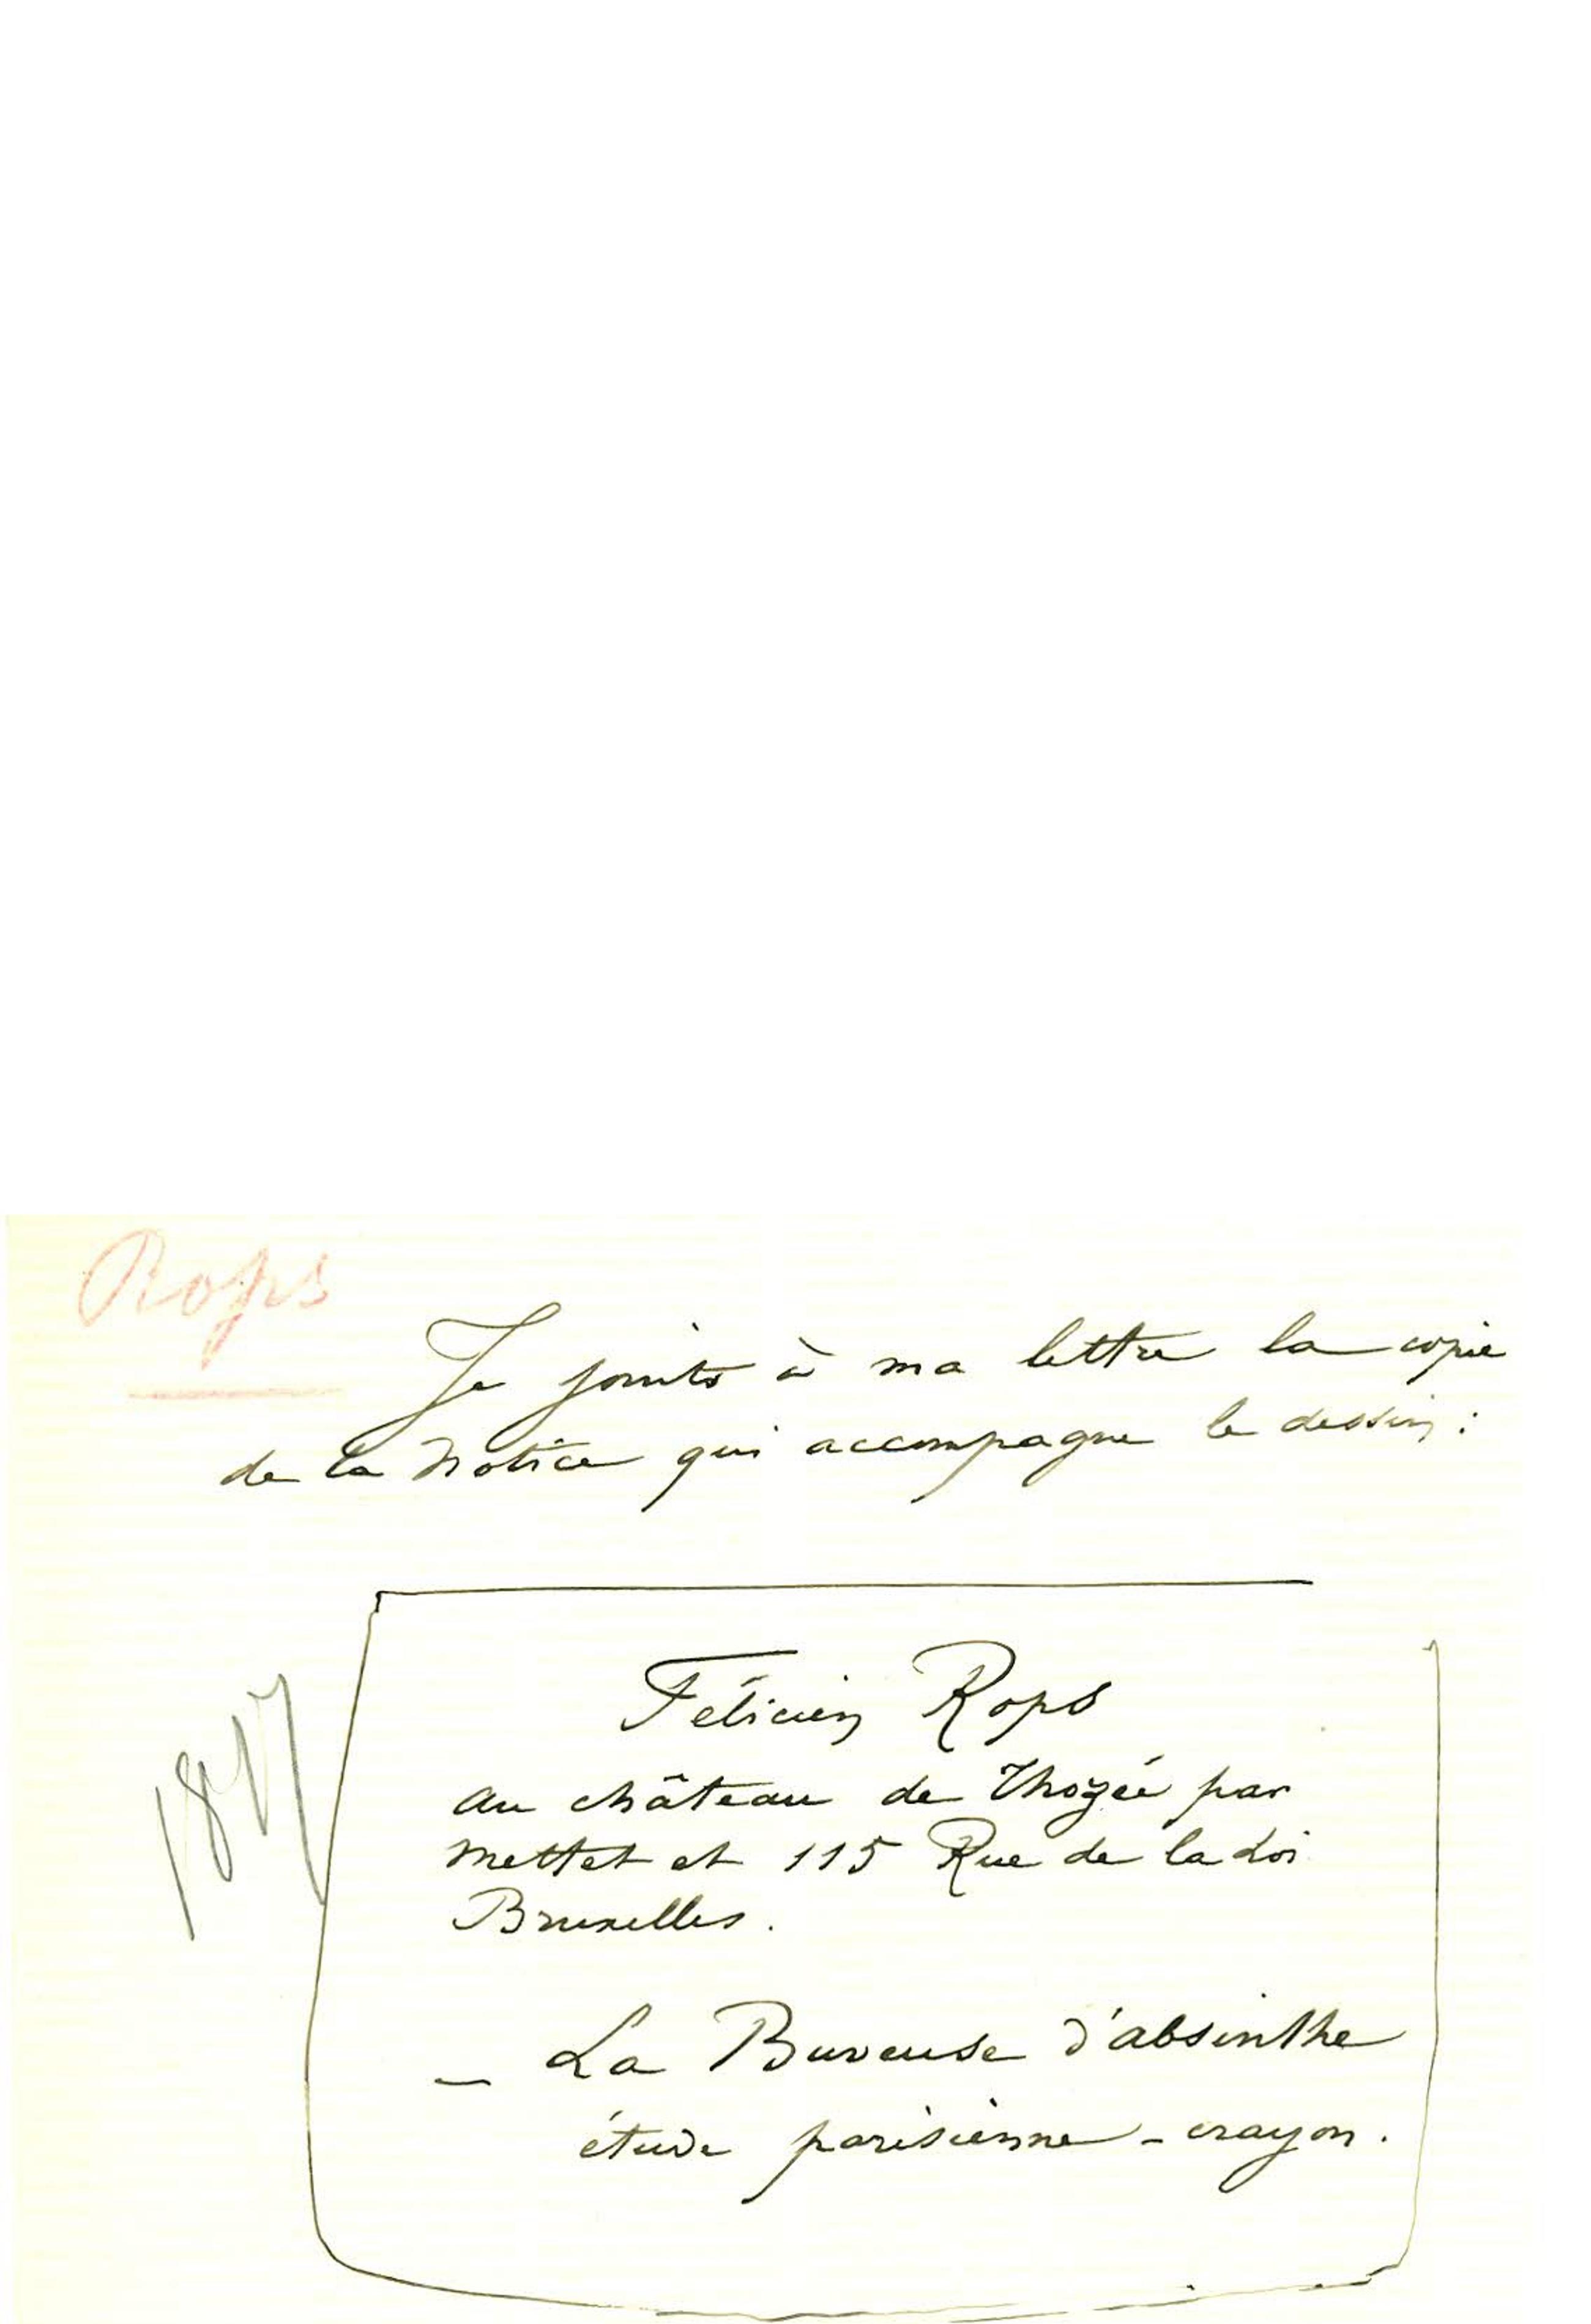 Rops
Je joints à ma lettre la copie
de la Notice qui accompagne le dessin :
Félicien Rops
au château de Thozée par
Mettet et 115 Rue de la Loi
Bruxelles.
– La Buveuse d'absinthe
étude parisienne - crayon.